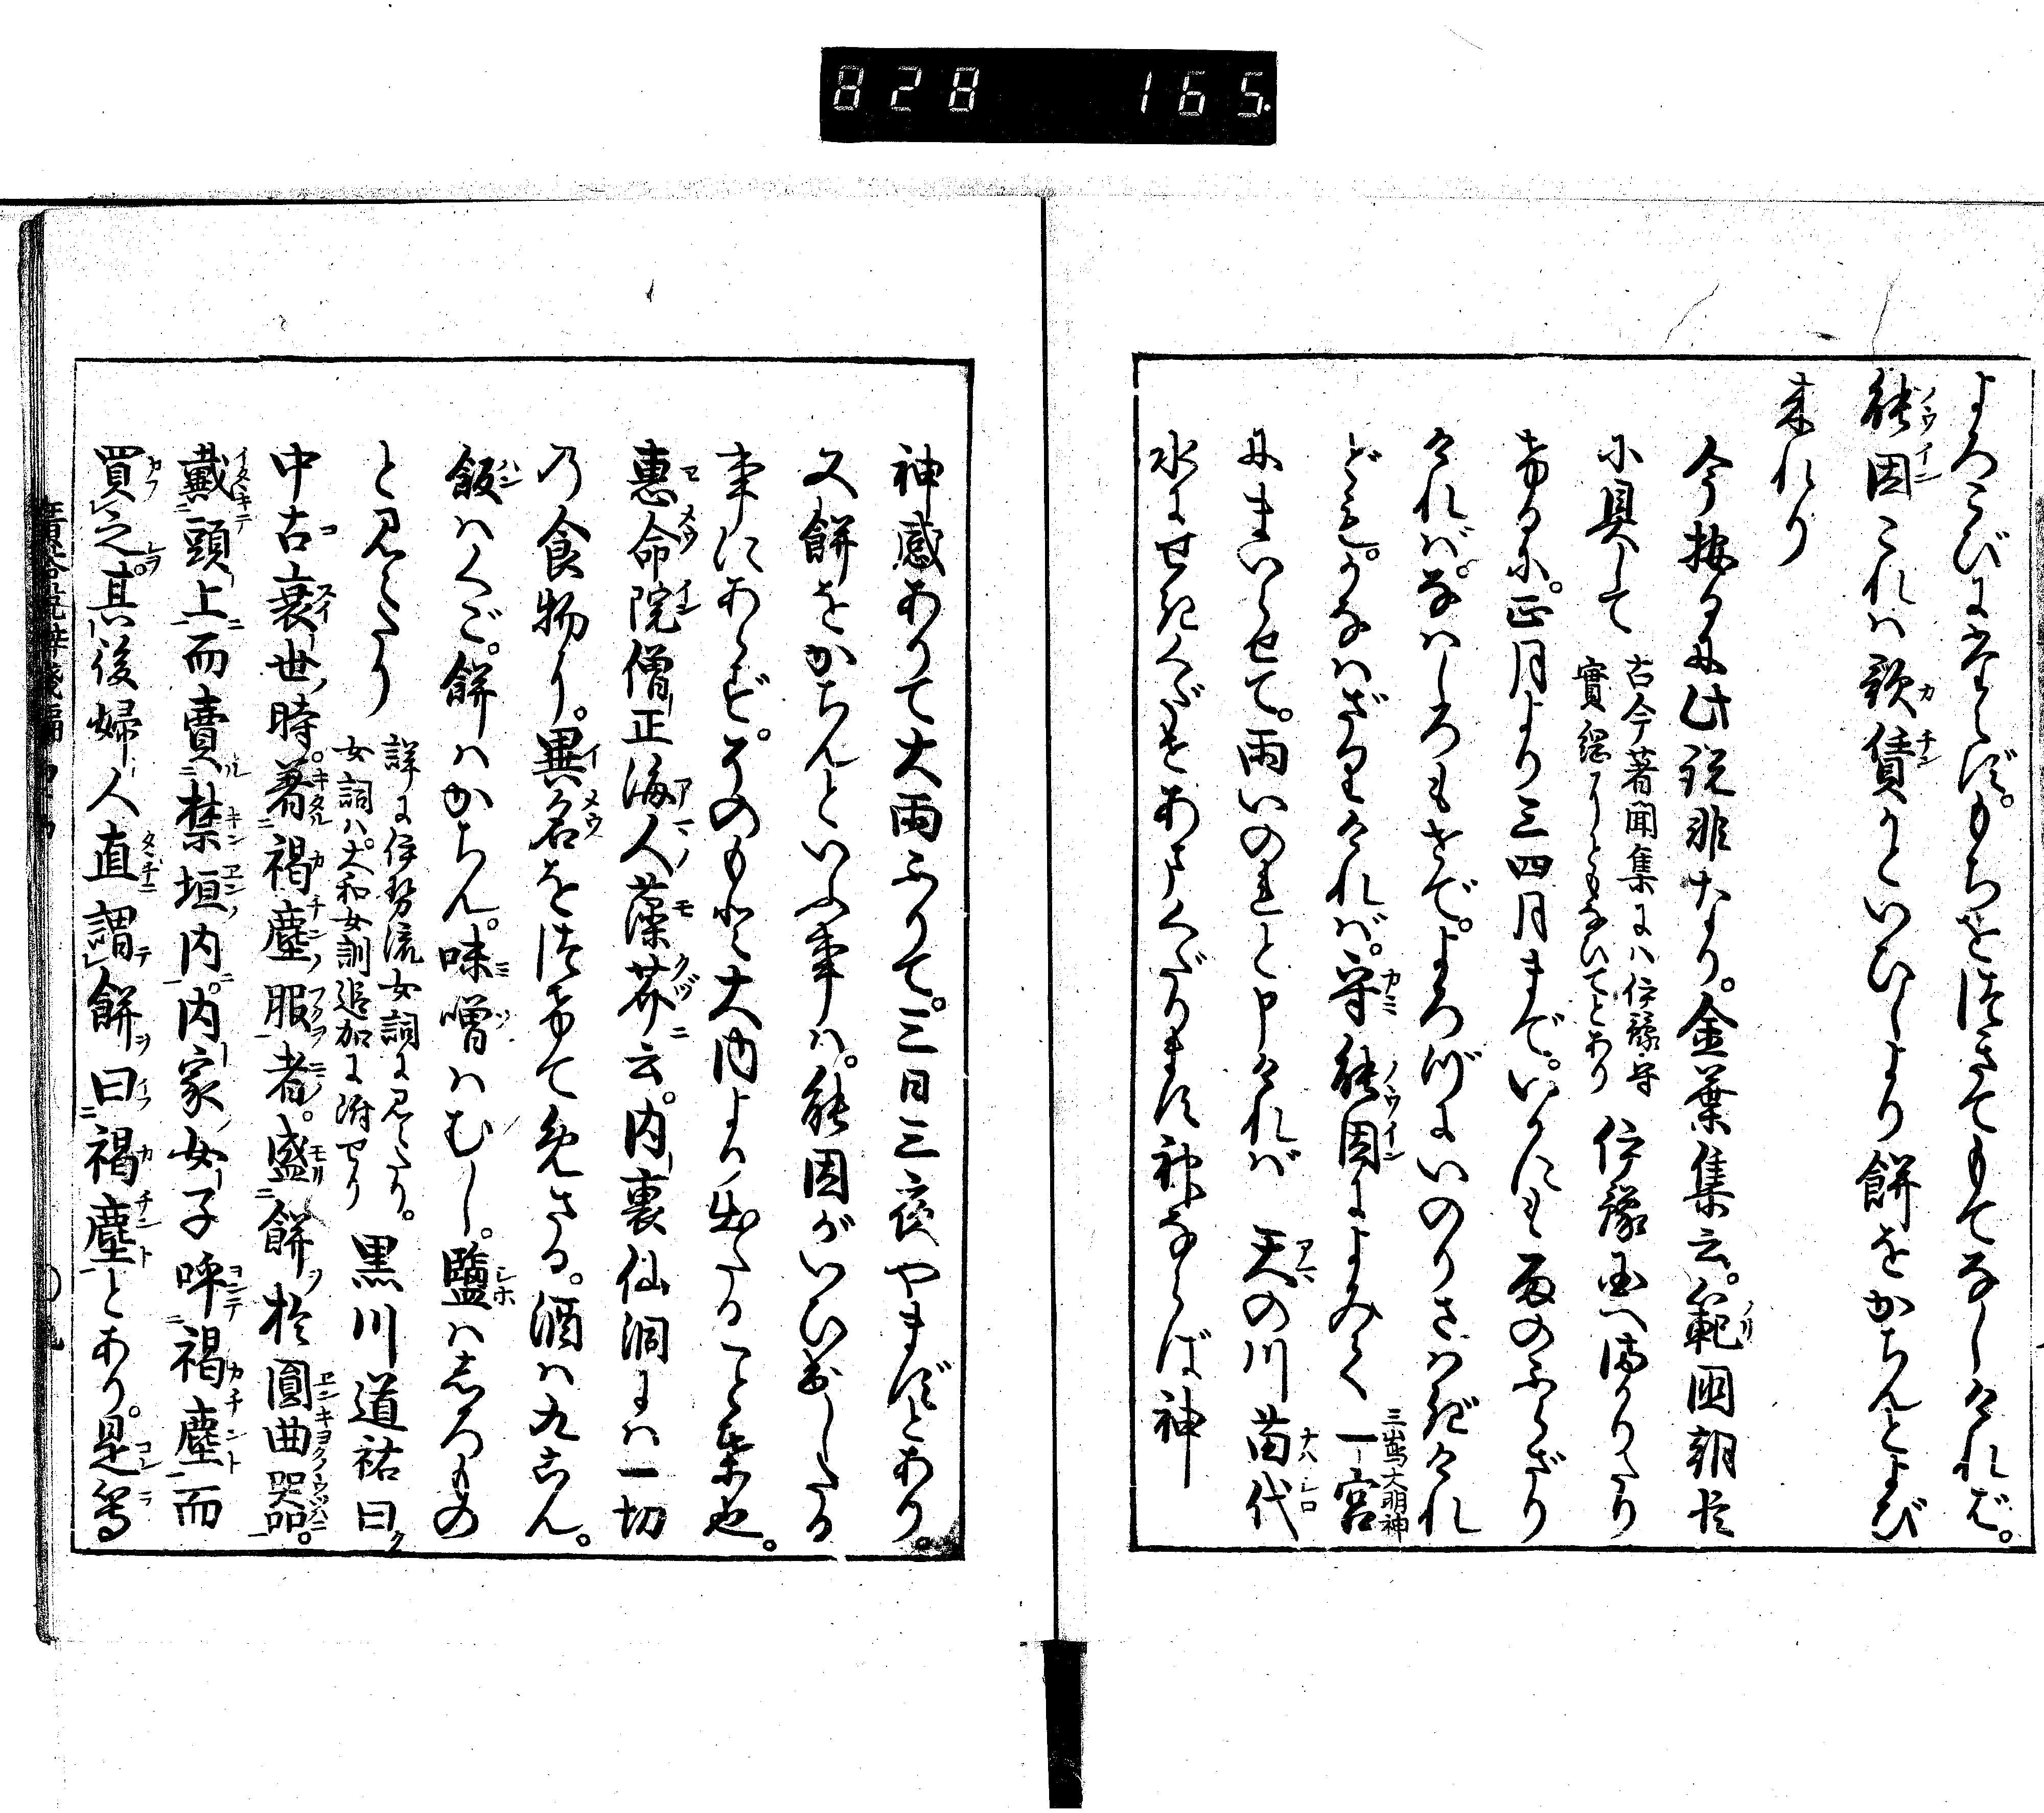 828 165
よろこびにたへず。もちをつきてもてなしければ。
能因これハ歌賃かといひしより餅をかちんとよび
来れり
今按るに此説非なり。金葉集云。範国朝臣
に具して
古今著聞集にハ伊豫守
實綱にともなひてとあり
伊豫国へまかりたり
けるに。正月より三四月まで。いかにも雨のふらざり
ければ。なハしろもせで。よろづにいのりさハぎけれ
ども。かなハざりければ。守能因によみて一宮
三嶌大明神
にまいらせて。雨いのれと申ければ 天の川苗代
水にせきくだせあまくだります神ならば神
神感ありて大雨ふりて。三日三夜やまずとあり。
又餅をかちんといふ事ハ。能因がいひ出しゝたる
事にあらず。そのもと大内より出たること葉也。
惠命院僧正海人藻芥云。内裏仙洞にハ一切
乃食物に。異名を付て免さる。酒ハ九こん。
飯ハくご。餅ハかちん。味噌ハむし。鹽ハしろもの
と見えたり
詳に伊勢流女詞に見えたり。
女詞ハ。大和女訓追加に附せり
黒川道祐曰
中古衰世時。著褐塵服者。盛餅於圓曲器。
戴頭上而賣禁垣内。内家女子呼褐塵而
買之。其後婦人直謂餅曰褐塵とあり。是等